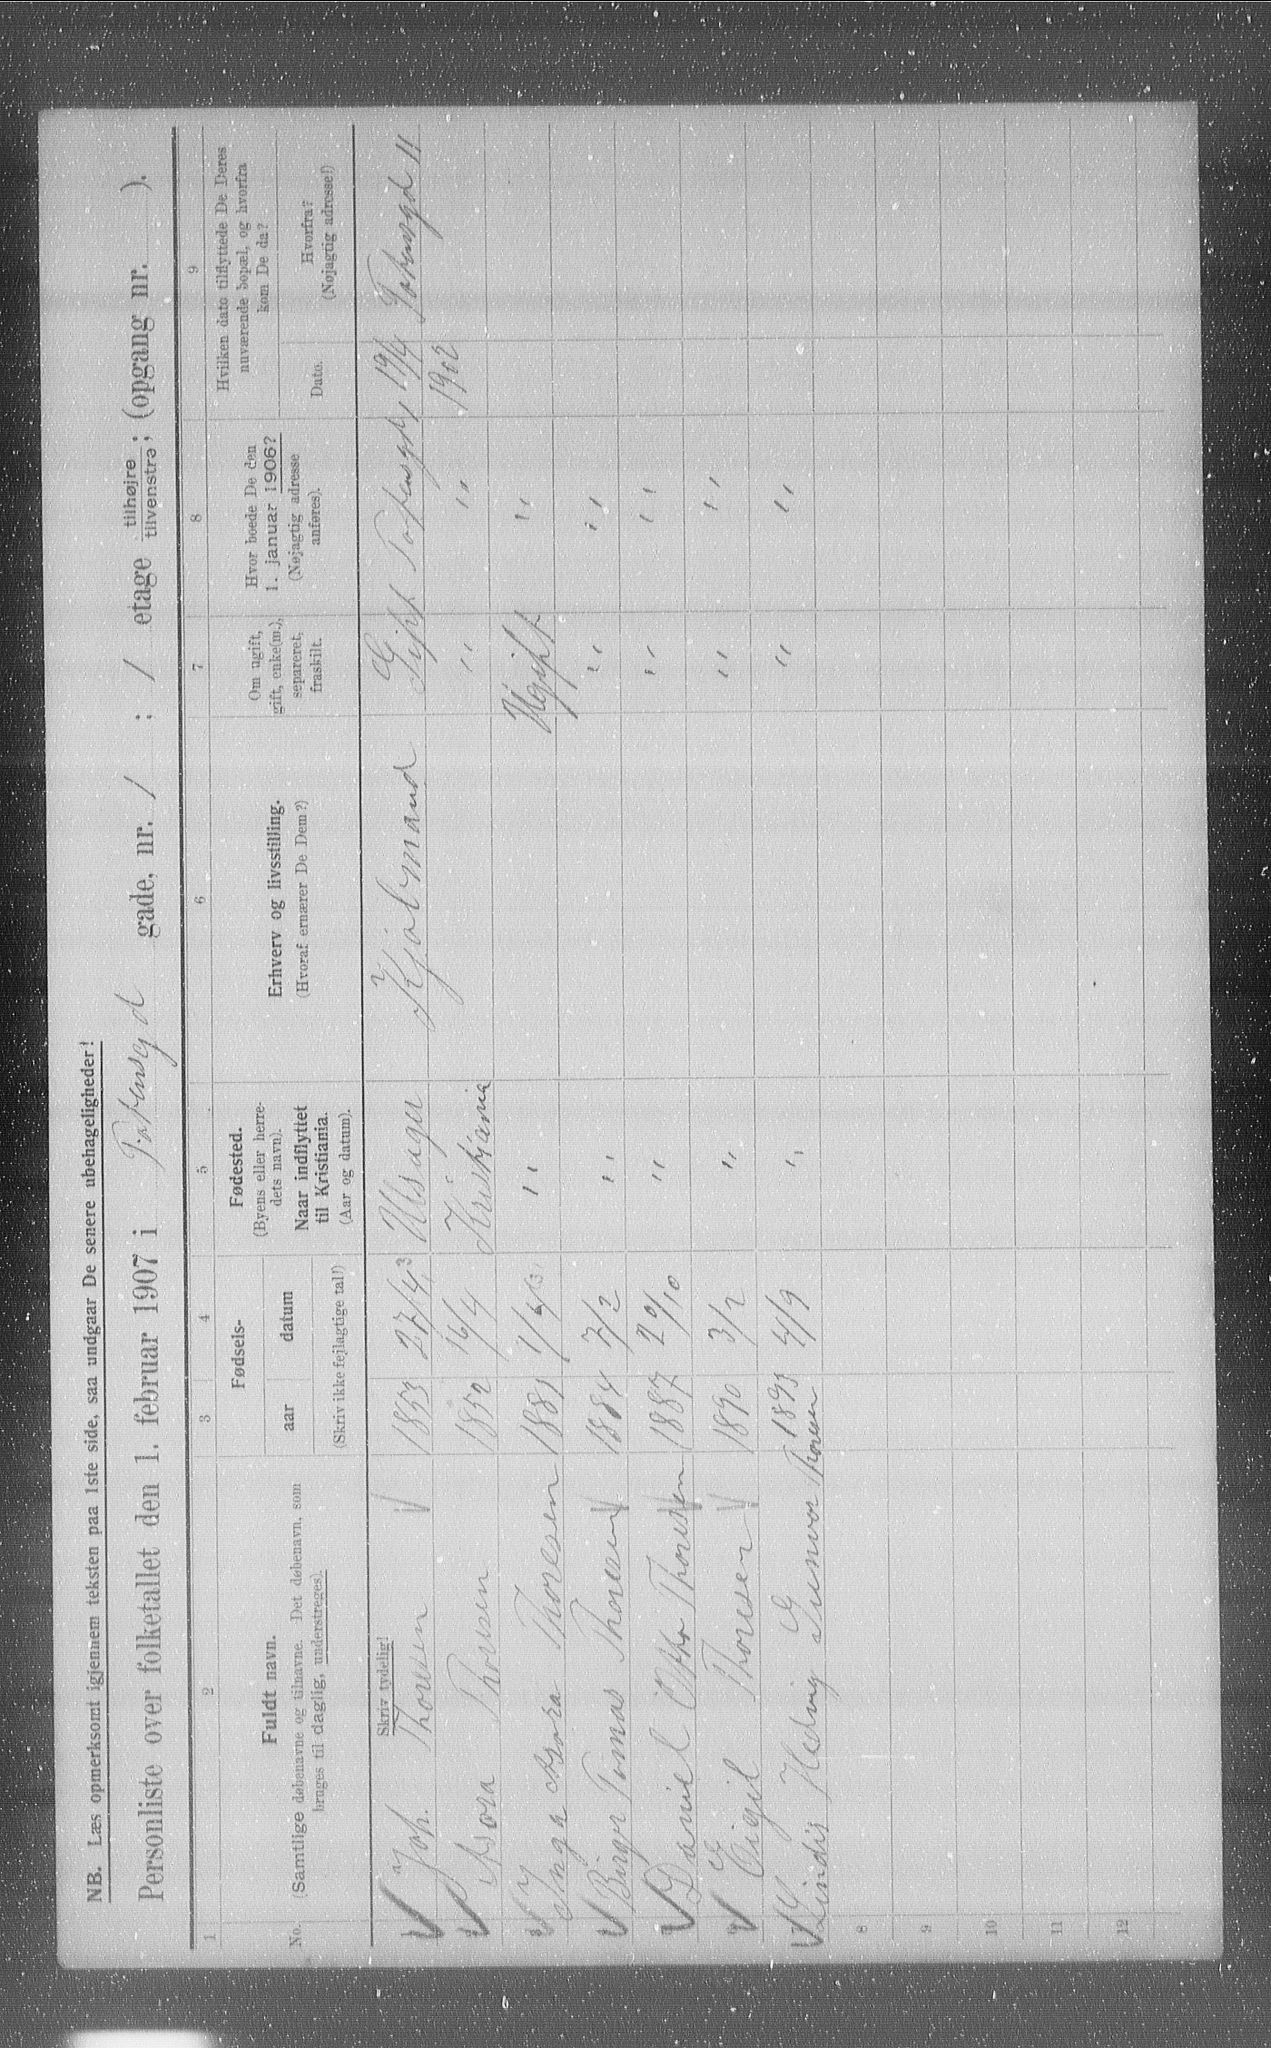 NB. Læs opmerksomt igjennem teksten paa 1ste side, saa undgaar De senere ubehageligheder!
Personliste over folketallet den 1. februar 1907 i Toftensgd gade, nr. 1 ; 1 etage tilhøjre tilvenstre; (opgang nr. ).
1 2 3 4 5 6 7 8 9
No.
Fuldt navn.
(Samtlige døbenavne og tilnavne. Det døbenavn, som
bruges til daglig, understreges).
Fødsels-
aar datum
(Skriv ikke fejlagtige tal!)
Fødested.
(Byens eller herre-
dets navn).
Naar indflyttet
til Kristiania.
(Aar og datum).
Erhverv og livsstilling.
(Hvoraf ernærer De Dem?)
Om ugift,
gift, enke(m.),
separeret,
fraskilt.
Hvor boede De den
1. januar 1906?
(Nøjagtig adresse
anføres).
Hvilken dato tilflyttede De Deres
nuværende bopæl, og hvorfra
kom De da?
Dato.
Hvorfra?
(Nøjagtig adresse!)
Skriv tydelig!
Joh. Thoresen 1853 27/4 Ullsager Kjølsmand Gift 19/4 Toftensgd 11
Thoresen 1852 16/4 Kristiania " " 1902
Inga Thoresen 1881 " Ugift "
Birger Tomas Thoresen 1884 7/2 " " "
Daniel Otto Thoresen 1887 20/10 " " "
Eigil Thoresen 1890 3/2 " " "
7 Lindis Hedvig Gunvor Thoresen 1895 4/9 " " "
8
9
10
11
12